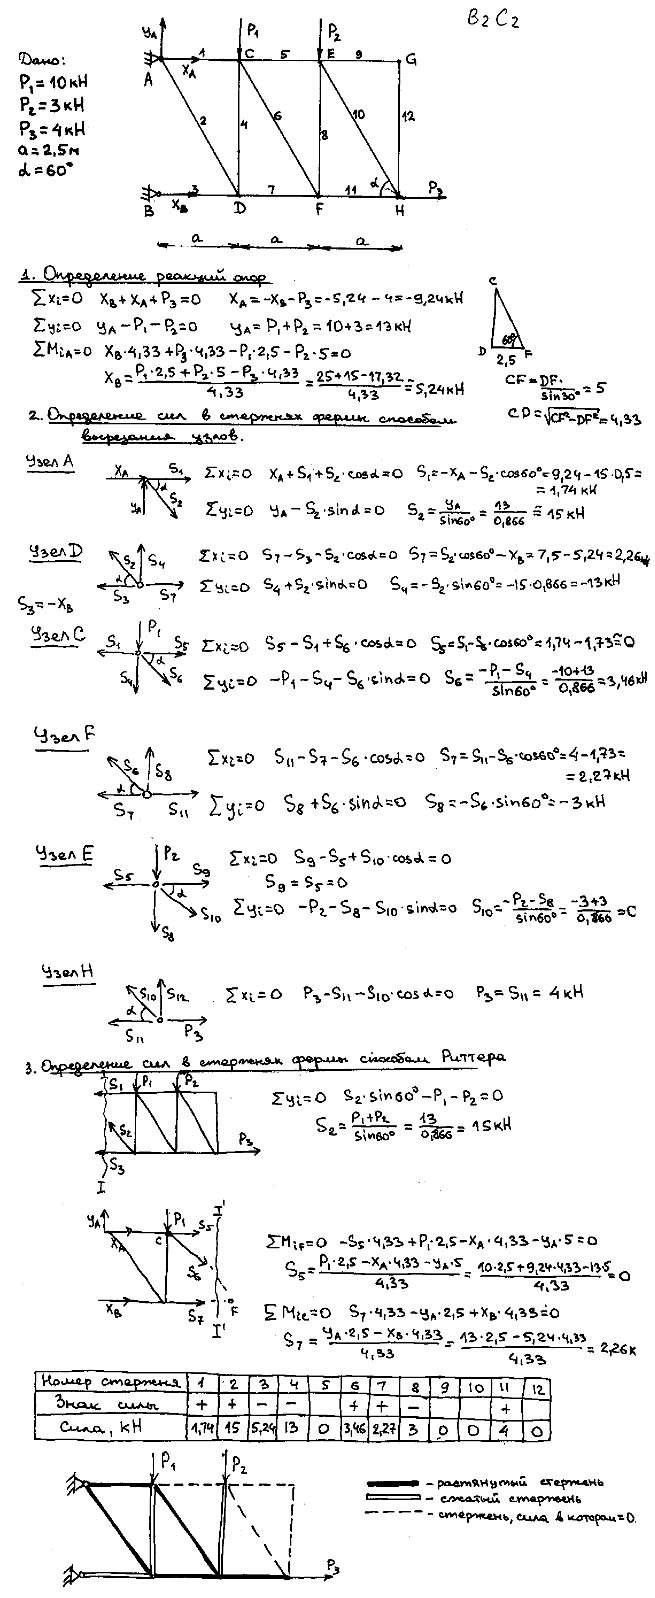 B₂C₂
Дано:
P₁ = 10 кН
P₂ = 3 кН
P₃ = 4 кН
a = 2,5 м
α = 60°
yA P₁ P₂
1 C 5 E 9 G
A XA
2 4 6 8 10 12
3 7 11 α P₃
B XB D F H
a a a
1. Определение реакций опор
ΣXi=0 XB+XA+P₃=0 XA=-XB-P₃=-5,24-4=-9,24кН
Σyi=0 yA-P₁-P₂=0 yA=P₁+P₂=10+3=13кН
ΣMiA=0 XB·4,33+P₃·4,33-P₁·2,5-P₂·5=0
XB=(P₁·2,5+P₂·5-P₃·4,33)/4,33=(25+15-17,32)/4,33=5,24кН
C
60°
D F
2,5
CF=DF·/sin30°=5
CD=√(CF²-DF²)=4,33
2. Определение сил в стержнях фермы способом
вырезания узлов.
Узел A
XA S₁ α S₂ yA
ΣXi=0 XA+S₁+S₂·cosα=0 S₁=-XA-S₂·cos60°=9,24-15·0,5=
=1,74 кН
Σyi=0 yA-S₂·sinα=0 S₂=yA/sin60°=13/0,866≈15 кН
Узел D
S₂ S₄ α S₃ S₇
ΣXi=0 S₇-S₃-S₂·cosα=0 S₇=S₂·cos60°-XB=7,5-5,24=2,26кН
Σyi=0 S₄+S₂·sinα=0 S₄=-S₂·sin60°=-15·0,866=-13кН
S₃=-XB
Узел C
P₁ S₁ S₅ α S₆ S₄
ΣXi=0 S₅-S₁+S₆·cosα=0 S₅=S₁-S₆·cos60°=1,74-1,73≈0
Σyi=0 -P₁-S₄-S₆·sinα=0 S₆=(-P₁-S₄)/sin60°=(-10+13)/0,866=3,46кН
Узел F
S₆ S₈ α S₇ S₁₁
ΣXi=0 S₁₁-S₇-S₆·cosα=0 S₇=S₁₁-S₆·cos60°=4-1,73=
=2,27кН
Σyi=0 S₈+S₆·sinα=0 S₈=-S₆·sin60°=-3 кН
Узел E
P₂ S₅ S₉ α S₁₀ S₈
ΣXi=0 S₉-S₅+S₁₀·cosα=0
S₉=S₅=0
Σyi=0 -P₂-S₈-S₁₀·sinα=0 S₁₀=(-P₂-S₈)/sin60°=(-3+3)/0,866=0
Узел H
S₁₀ S₁₂ α S₁₁ P₃
ΣXi=0 P₃-S₁₁-S₁₀·cosα=0 P₃=S₁₁=4кН
3. Определение сил в стержнях фермы способом Риттера
I S₁ P₁ P₂
S₂ P₃
S₃
I
Σyi=0 S₂·sin60°-P₁-P₂=0
S₂=(P₁+P₂)/sin60°=13/0,866=15кН
I'
yA P₁ S₅
XA C S₆
XB S₇ F
I'
ΣMiF=0 -S₅·4,33+P₁·2,5-XA·4,33-yA·5=0
S₅=(P₁·2,5-XA·4,33-yA·5)/4,33=(10·2,5+9,24·4,33-13·5)/4,33=0
ΣMic=0 S₇·4,33-yA·2,5+XB·4,33=0
S₇=(yA·2,5-XB·4,33)/4,33=(13·2,5-5,24·4,33)/4,33=2,26к
Номер стержня 1 2 3 4 5 6 7 8 9 10 11 12
Знак силы + + - - + + - +
Сила, кН 1,74 15 5,24 13 0 3,46 2,27 3 0 0 4 0
P₁ P₂
P₃
- растянутый стержень
- сжатый стержень
- стержень, сила в котором=0.